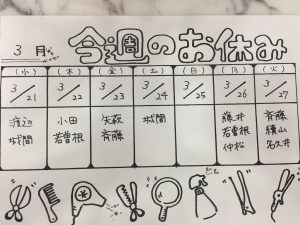 3月 今週のお休み
(水) (木) (金) (土) (日) (月) (火)
3/21 3/22 3/23 3/24 3/25 3/26 3/27
渡辺 小田 矢萩 城間 藤井 斉藤
城間 若曽根 斉藤 若曽根 續山
仲松 名久井